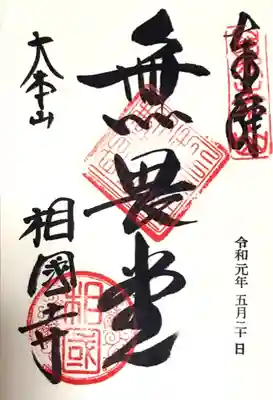 令和元年 五月二十日
無畏堂
大本山
相國寺
相國